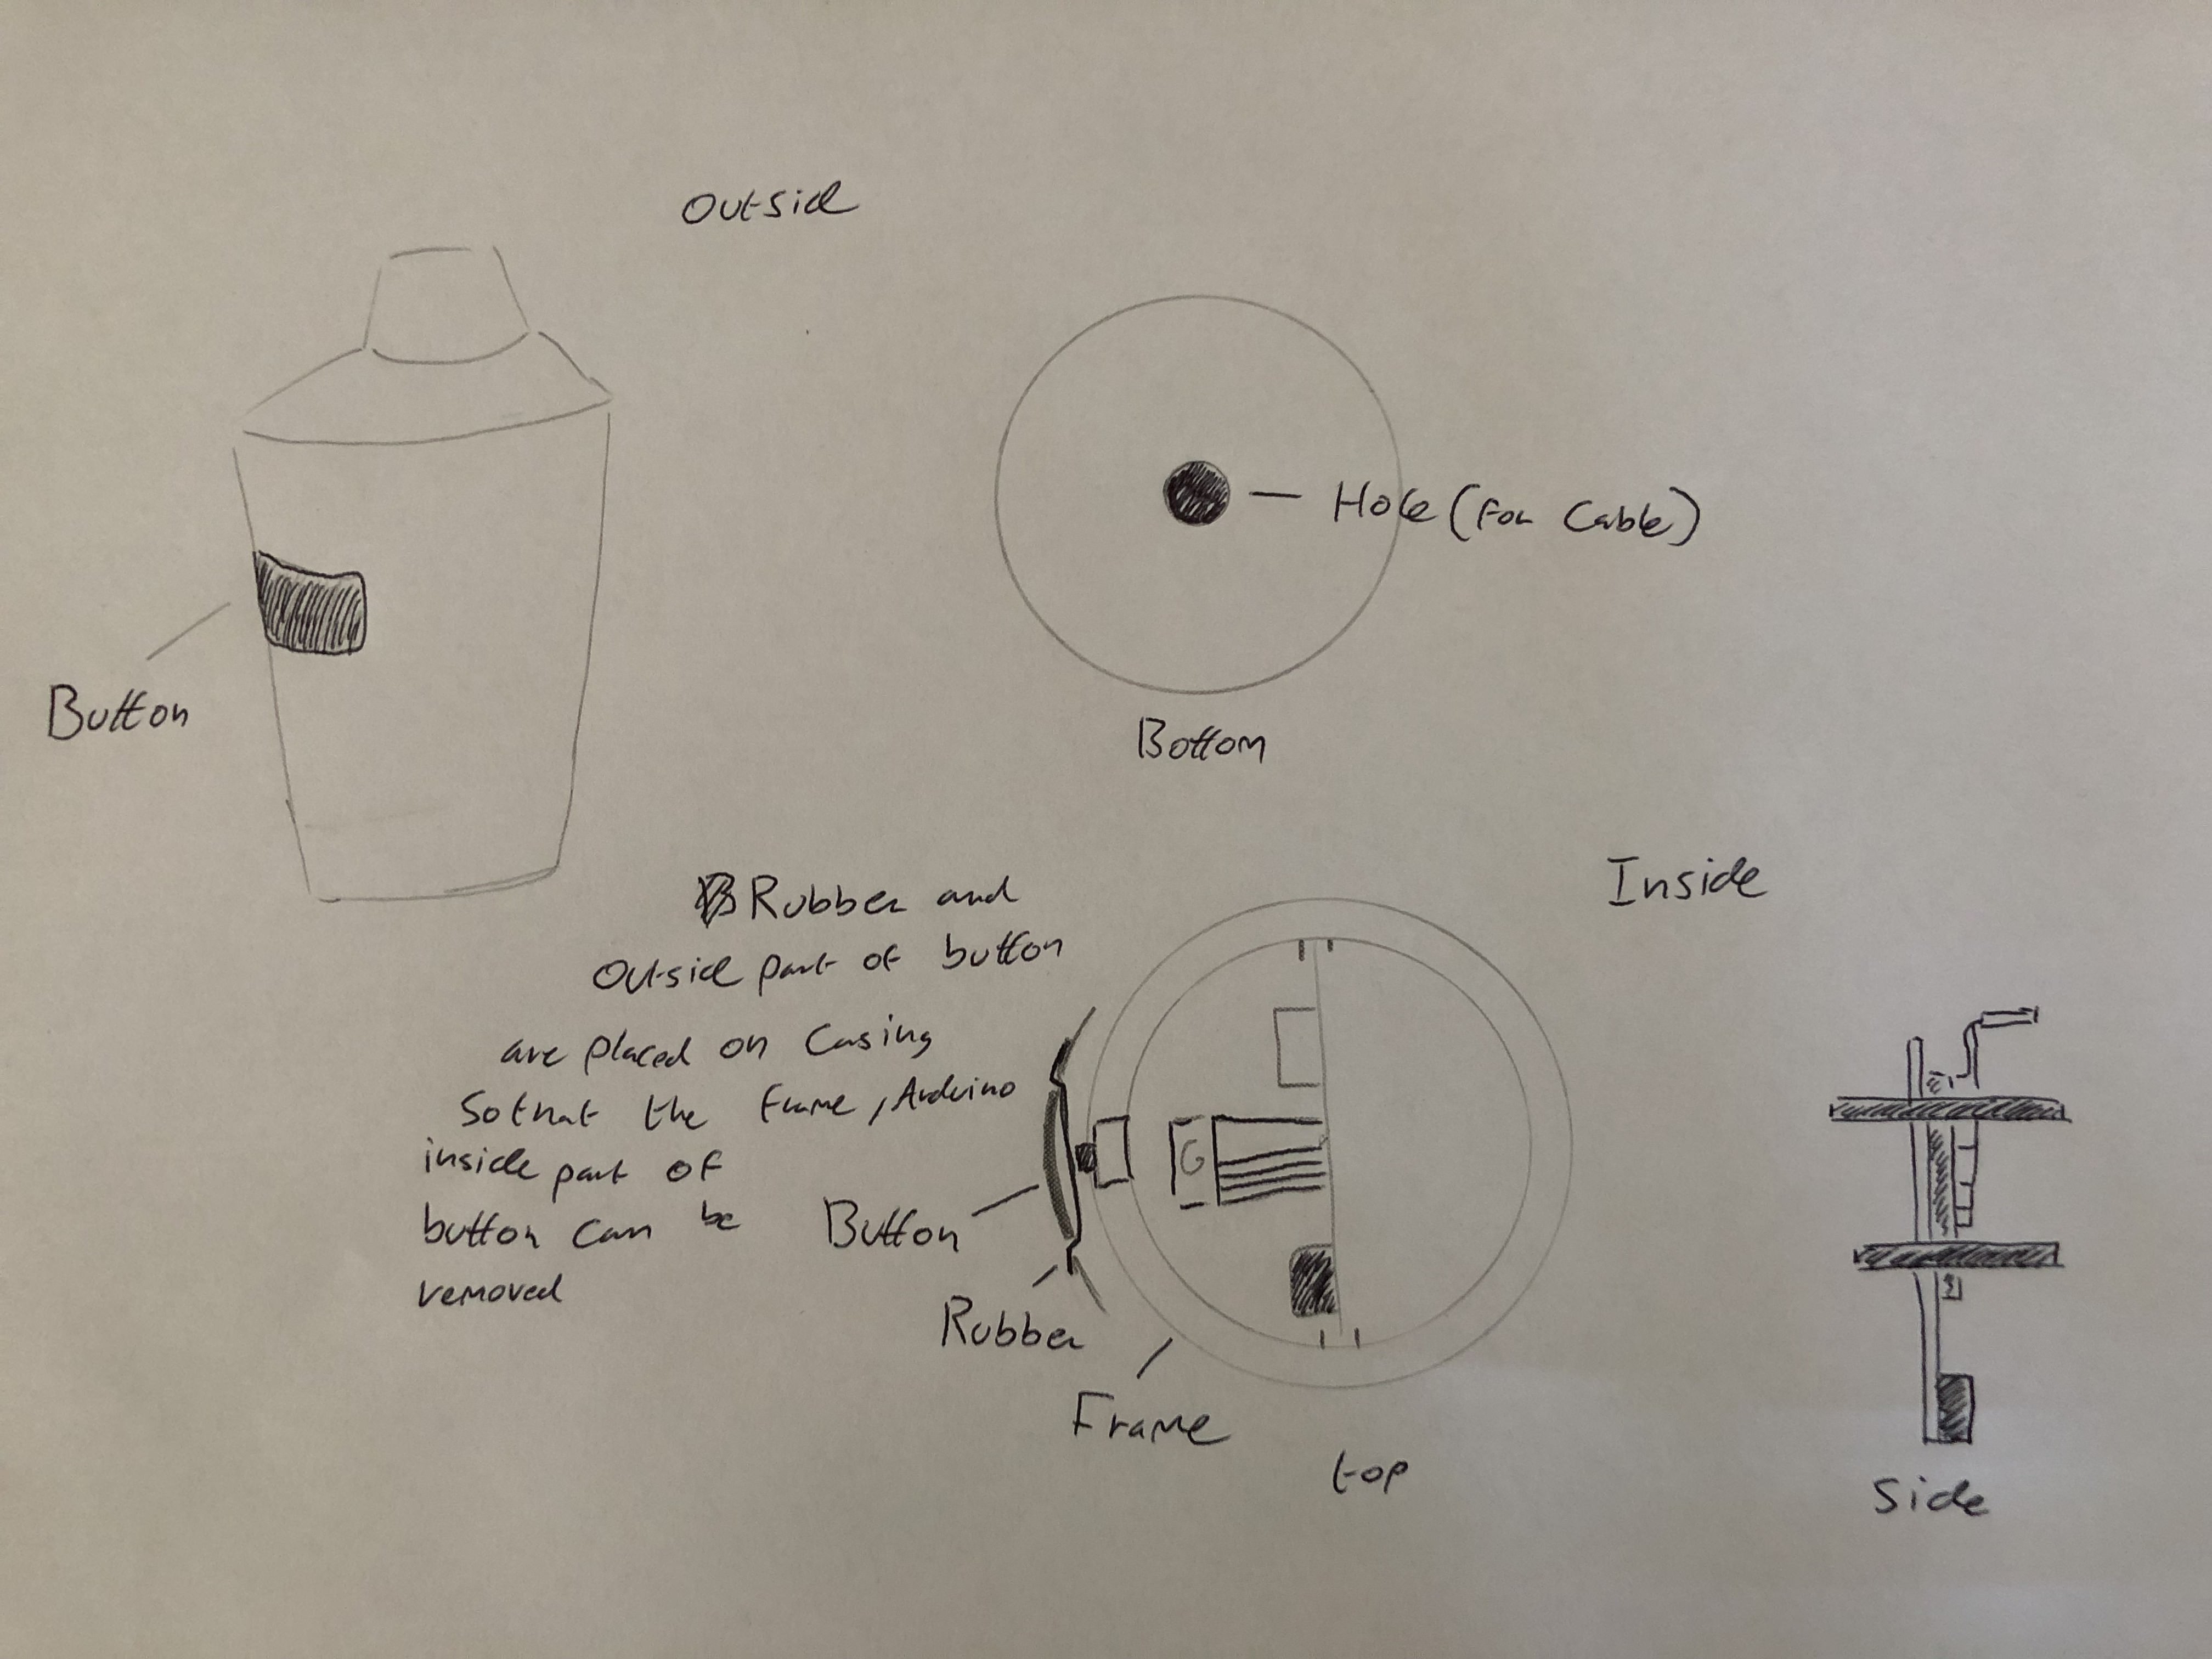 Outside
Button
Hole (For Cable)
Bottom
Inside
Rubber and
Outside part of button
are placed on Casing
Sothat the Frame, Arduino
inside part of
button can be
removed
Button
Rubber
Frame
top
G
Side